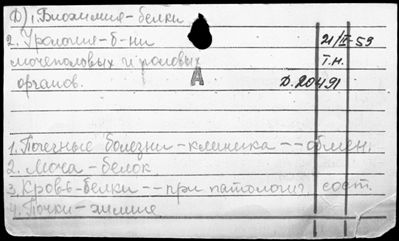 Ф) 1. Биохимия - белки
2. Урология - б-ни 21/II-59
мочеполовых и половых Т.Н.
органов. А Д. 20491
1. Почечные болезни - клиника -- обмен.
2. Моча - белок
3. Кровь - белки -- при патологич. сост.
4. Почки - химия